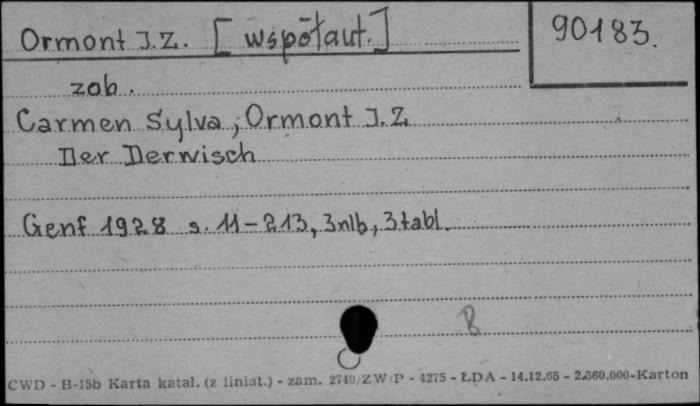 Ormont J.Z. [współaut.] 90183.
zob.
Carmen Sylva, Ormont J.Z.
Der Derwisch
Genf 1928 s. 11-213, 3nlb., 3tabl.
B
CWD - B-15b Karta katal. (z liniat.) - zam. 2740/ZW/P - 4275 - ŁDA - 14.12.65 - 2.360.000-Karton